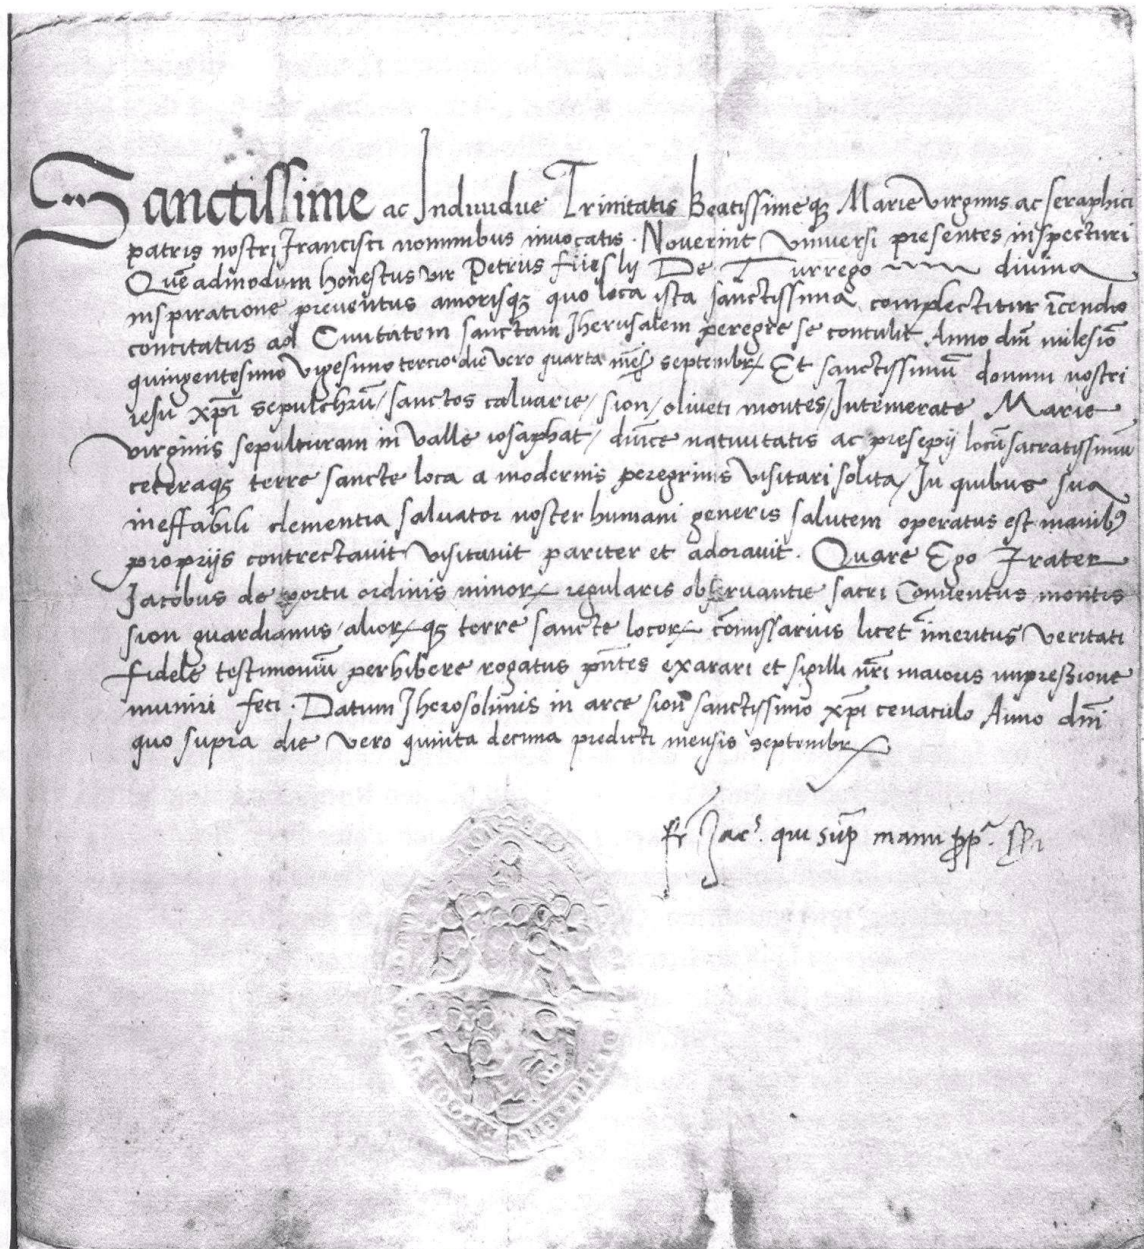 Sanctissime ac Individue Trinitatis Beatissimeq₃ Marie virginis ac seraphici
patris nostri Francisci nominibus invocatis · Noverint universi presentes inspecturi
Quēadmodum honestus vir Petrus füeslÿ De Turrego divina
inspiratione preventus amorisq₃ quo loca ista sanctissima complectitur īcendio
concitatus ad Civitatem sanctam Jherusalem peregre se contulit Anno dnī milesiō
quingentesimo vigesimo tercio · die vero quarta mēs septembrꝝ Et sanctissimū domini nostri
iesu xp̄i sepulchrū / sanctos calvarie / sion / oliveti montes / Intemerate Marie
virginis sepulturam in valle iosaphat / divīce nativitatis ac presepij locū sacratissimū
ceteraq₃ terre sancte loca a modernis peregrinis visitari solita / In quibus sua
ineffabili clementia salvator noster humani generis salutem operatus est manibꝰ
proprijs contrectavit visitavit pariter et adoravit · Quare Ego Frater
Jacobus de portu ordinis minorꝝ regularis observantie sacri Conventus montis
sion guardianus / aliorꝝ q₃ terre sancte locorꝝ cōmissarius licet īmeritus veritati
fidele testimoniū perhibere rogatus pn̄tes exarari et sigilli nr̄i maioris impressione
muniri feci · Datum Jherosolimis in arce sion sanctissimo xp̄i cenaculo Anno dnī
quo supra die vero quinta decima predicti mensis septembrꝝ
fr Jacs. qui sup̄ manu pp̄a